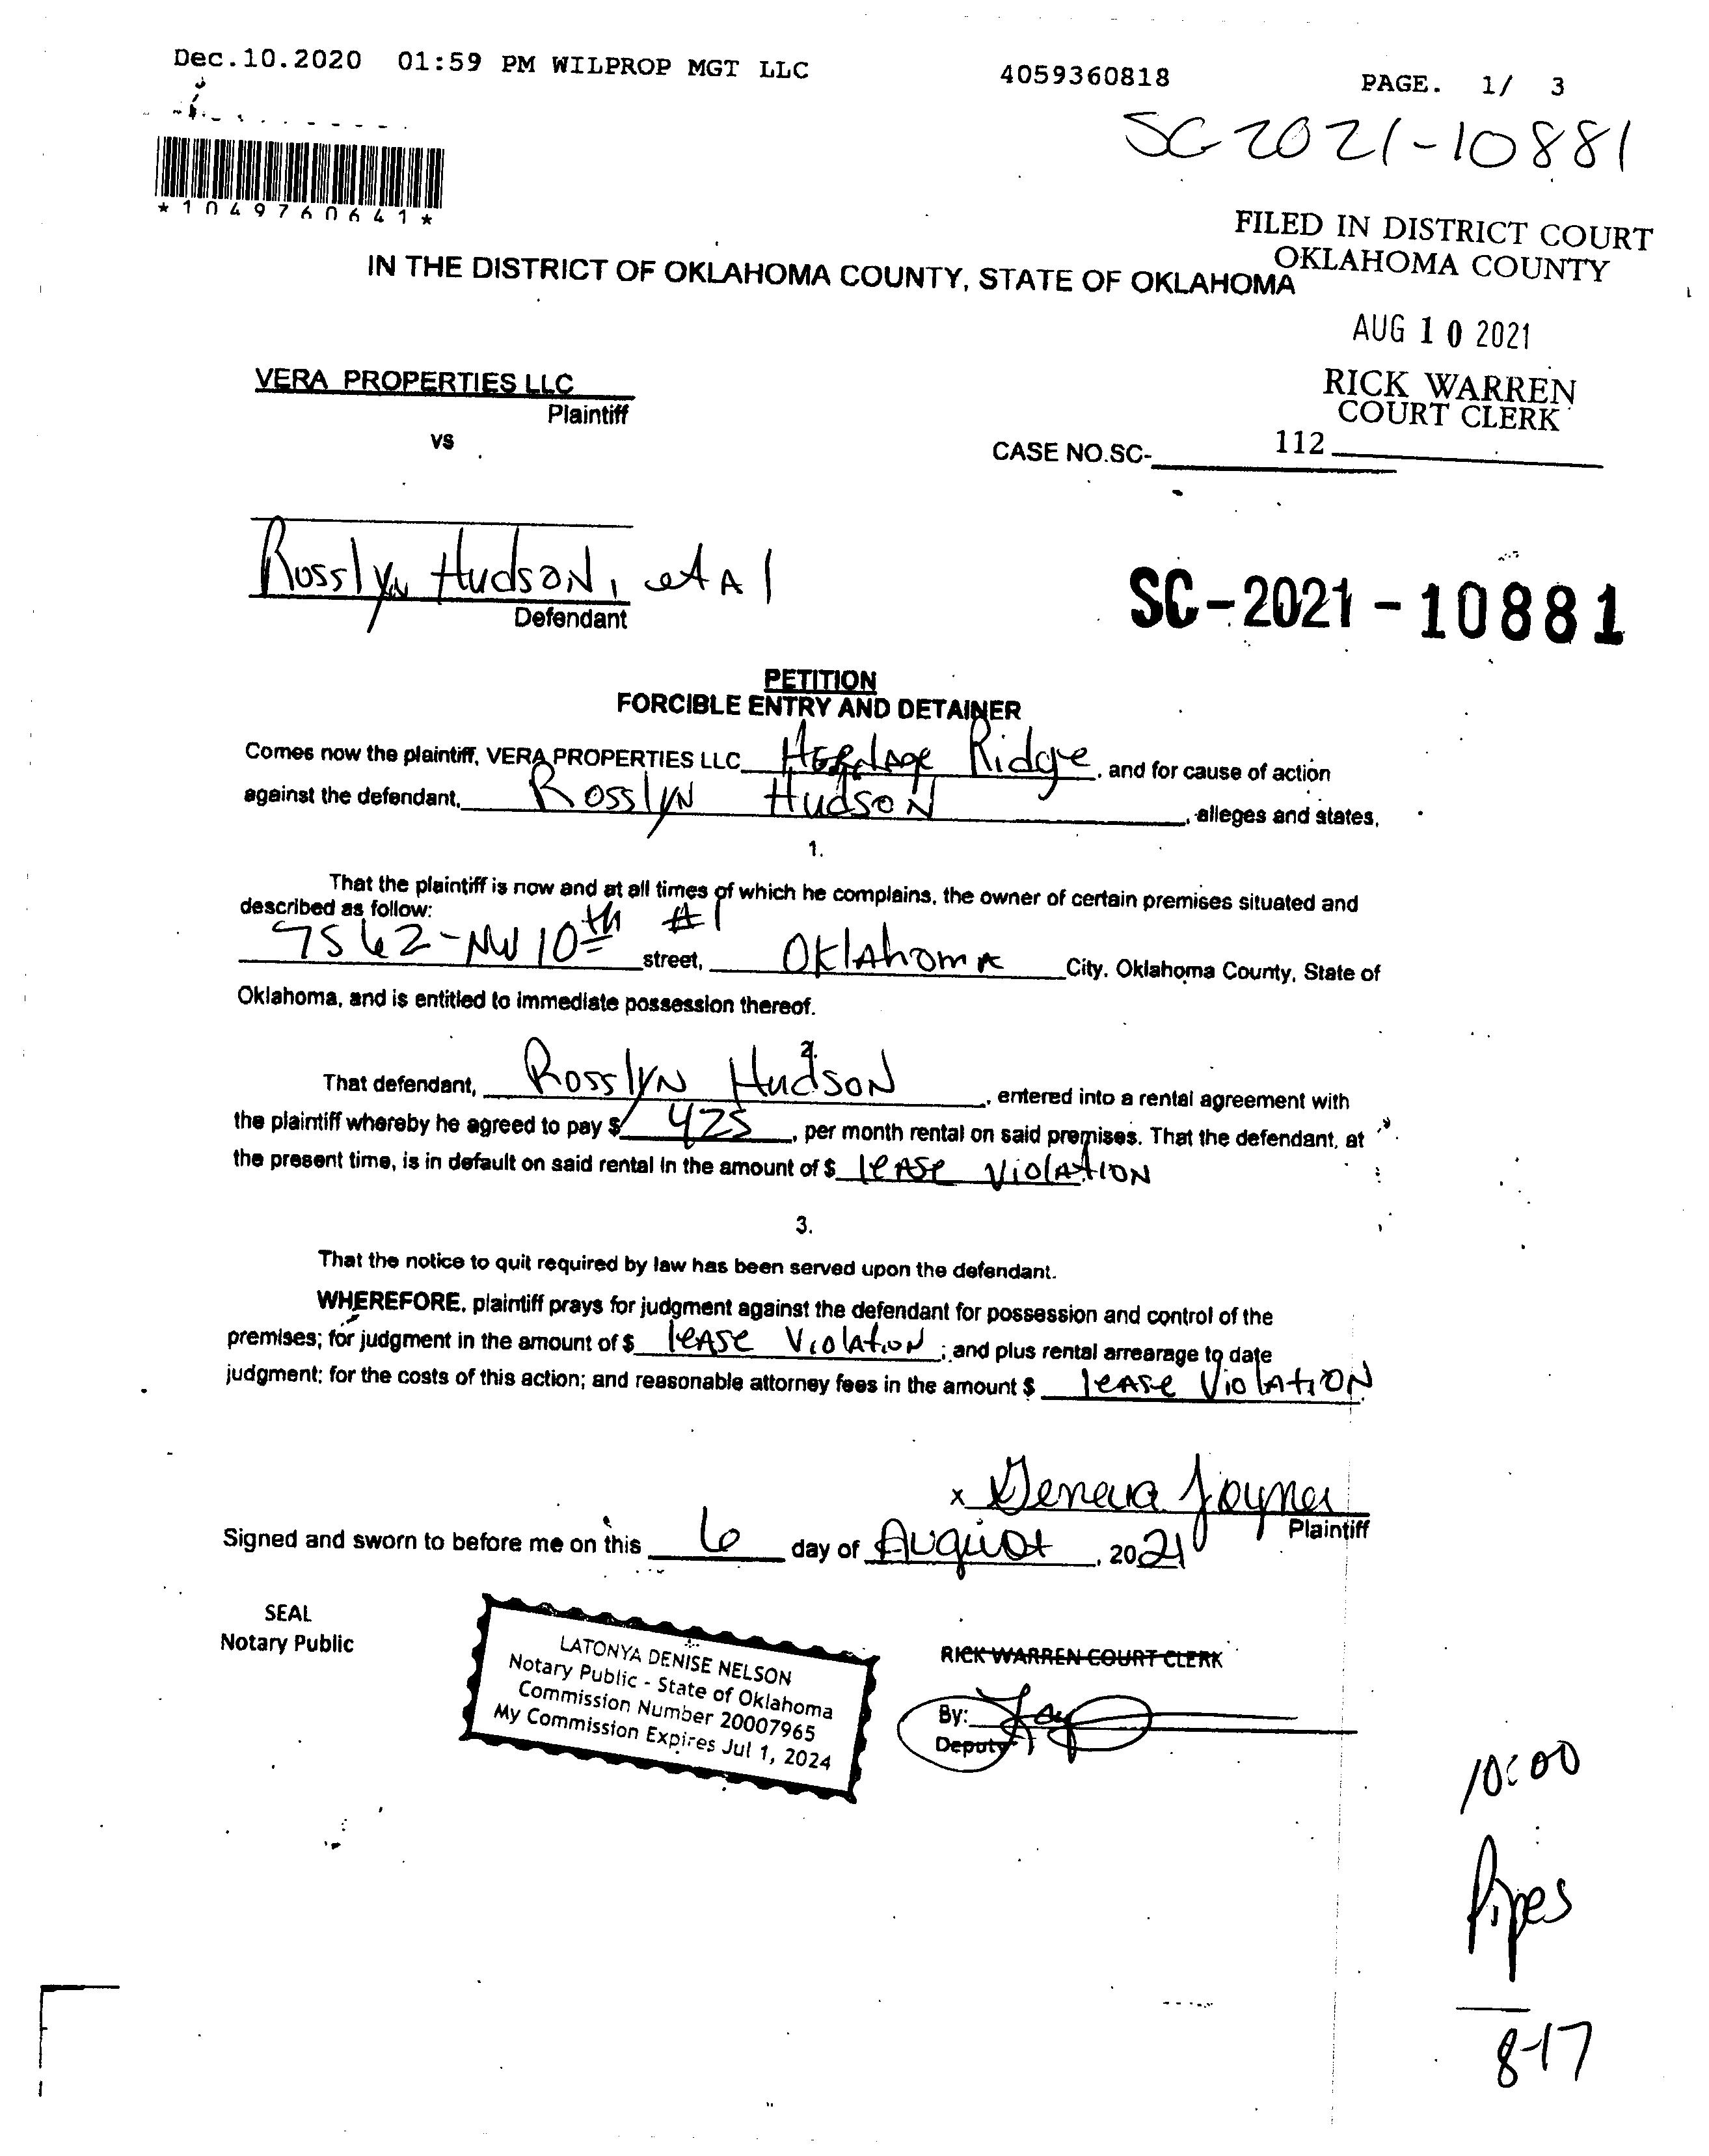 Dec.10.2020 01:59 PM WILPROP MGT LLC 4059360818 PAGE. 1/ 3
SC 2021-10881
*1049760641*
FILED IN DISTRICT COURT
OKLAHOMA COUNTY
IN THE DISTRICT OF OKLAHOMA COUNTY, STATE OF OKLAHOMA
AUG 10 2021
RICK WARREN
COURT CLERK
VERA PROPERTIES LLC
Plaintiff
vs
CASE NO.SC- 112
Rosslyn Hudson, et Al
Defendant
SC-2021-10881
PETITION
FORCIBLE ENTRY AND DETAINER
Comes now the plaintiff, VERA PROPERTIES LLC Heritage Ridge, and for cause of action
against the defendant, Rosslyn Hudson, alleges and states,
1.
That the plaintiff is now and at all times of which he complains, the owner of certain premises situated and
described as follow:
7562-NW 10th #1 street, Oklahoma City, Oklahoma County, State of
Oklahoma, and is entitled to immediate possession thereof.
2.
That defendant, Rosslyn Hudson, entered into a rental agreement with
the plaintiff whereby he agreed to pay $ 425, per month rental on said premises. That the defendant, at
the present time, is in default on said rental in the amount of $ lease violation
3.
That the notice to quit required by law has been served upon the defendant.
WHEREFORE, plaintiff prays for judgment against the defendant for possession and control of the
premises; for judgment in the amount of $ lease violation; and plus rental arrearage to date
judgment; for the costs of this action; and reasonable attorney fees in the amount $ lease violation
x Geneva Joyner
Plaintiff
Signed and sworn to before me on this 6 day of August, 2021
SEAL
Notary Public
LATONYA DENISE NELSON
Notary Public - State of Oklahoma
Commission Number 20007965
My Commission Expires Jul 1, 2024
RICK WARREN COURT CLERK
By:
Deputy
10:00
Pipes
8-17